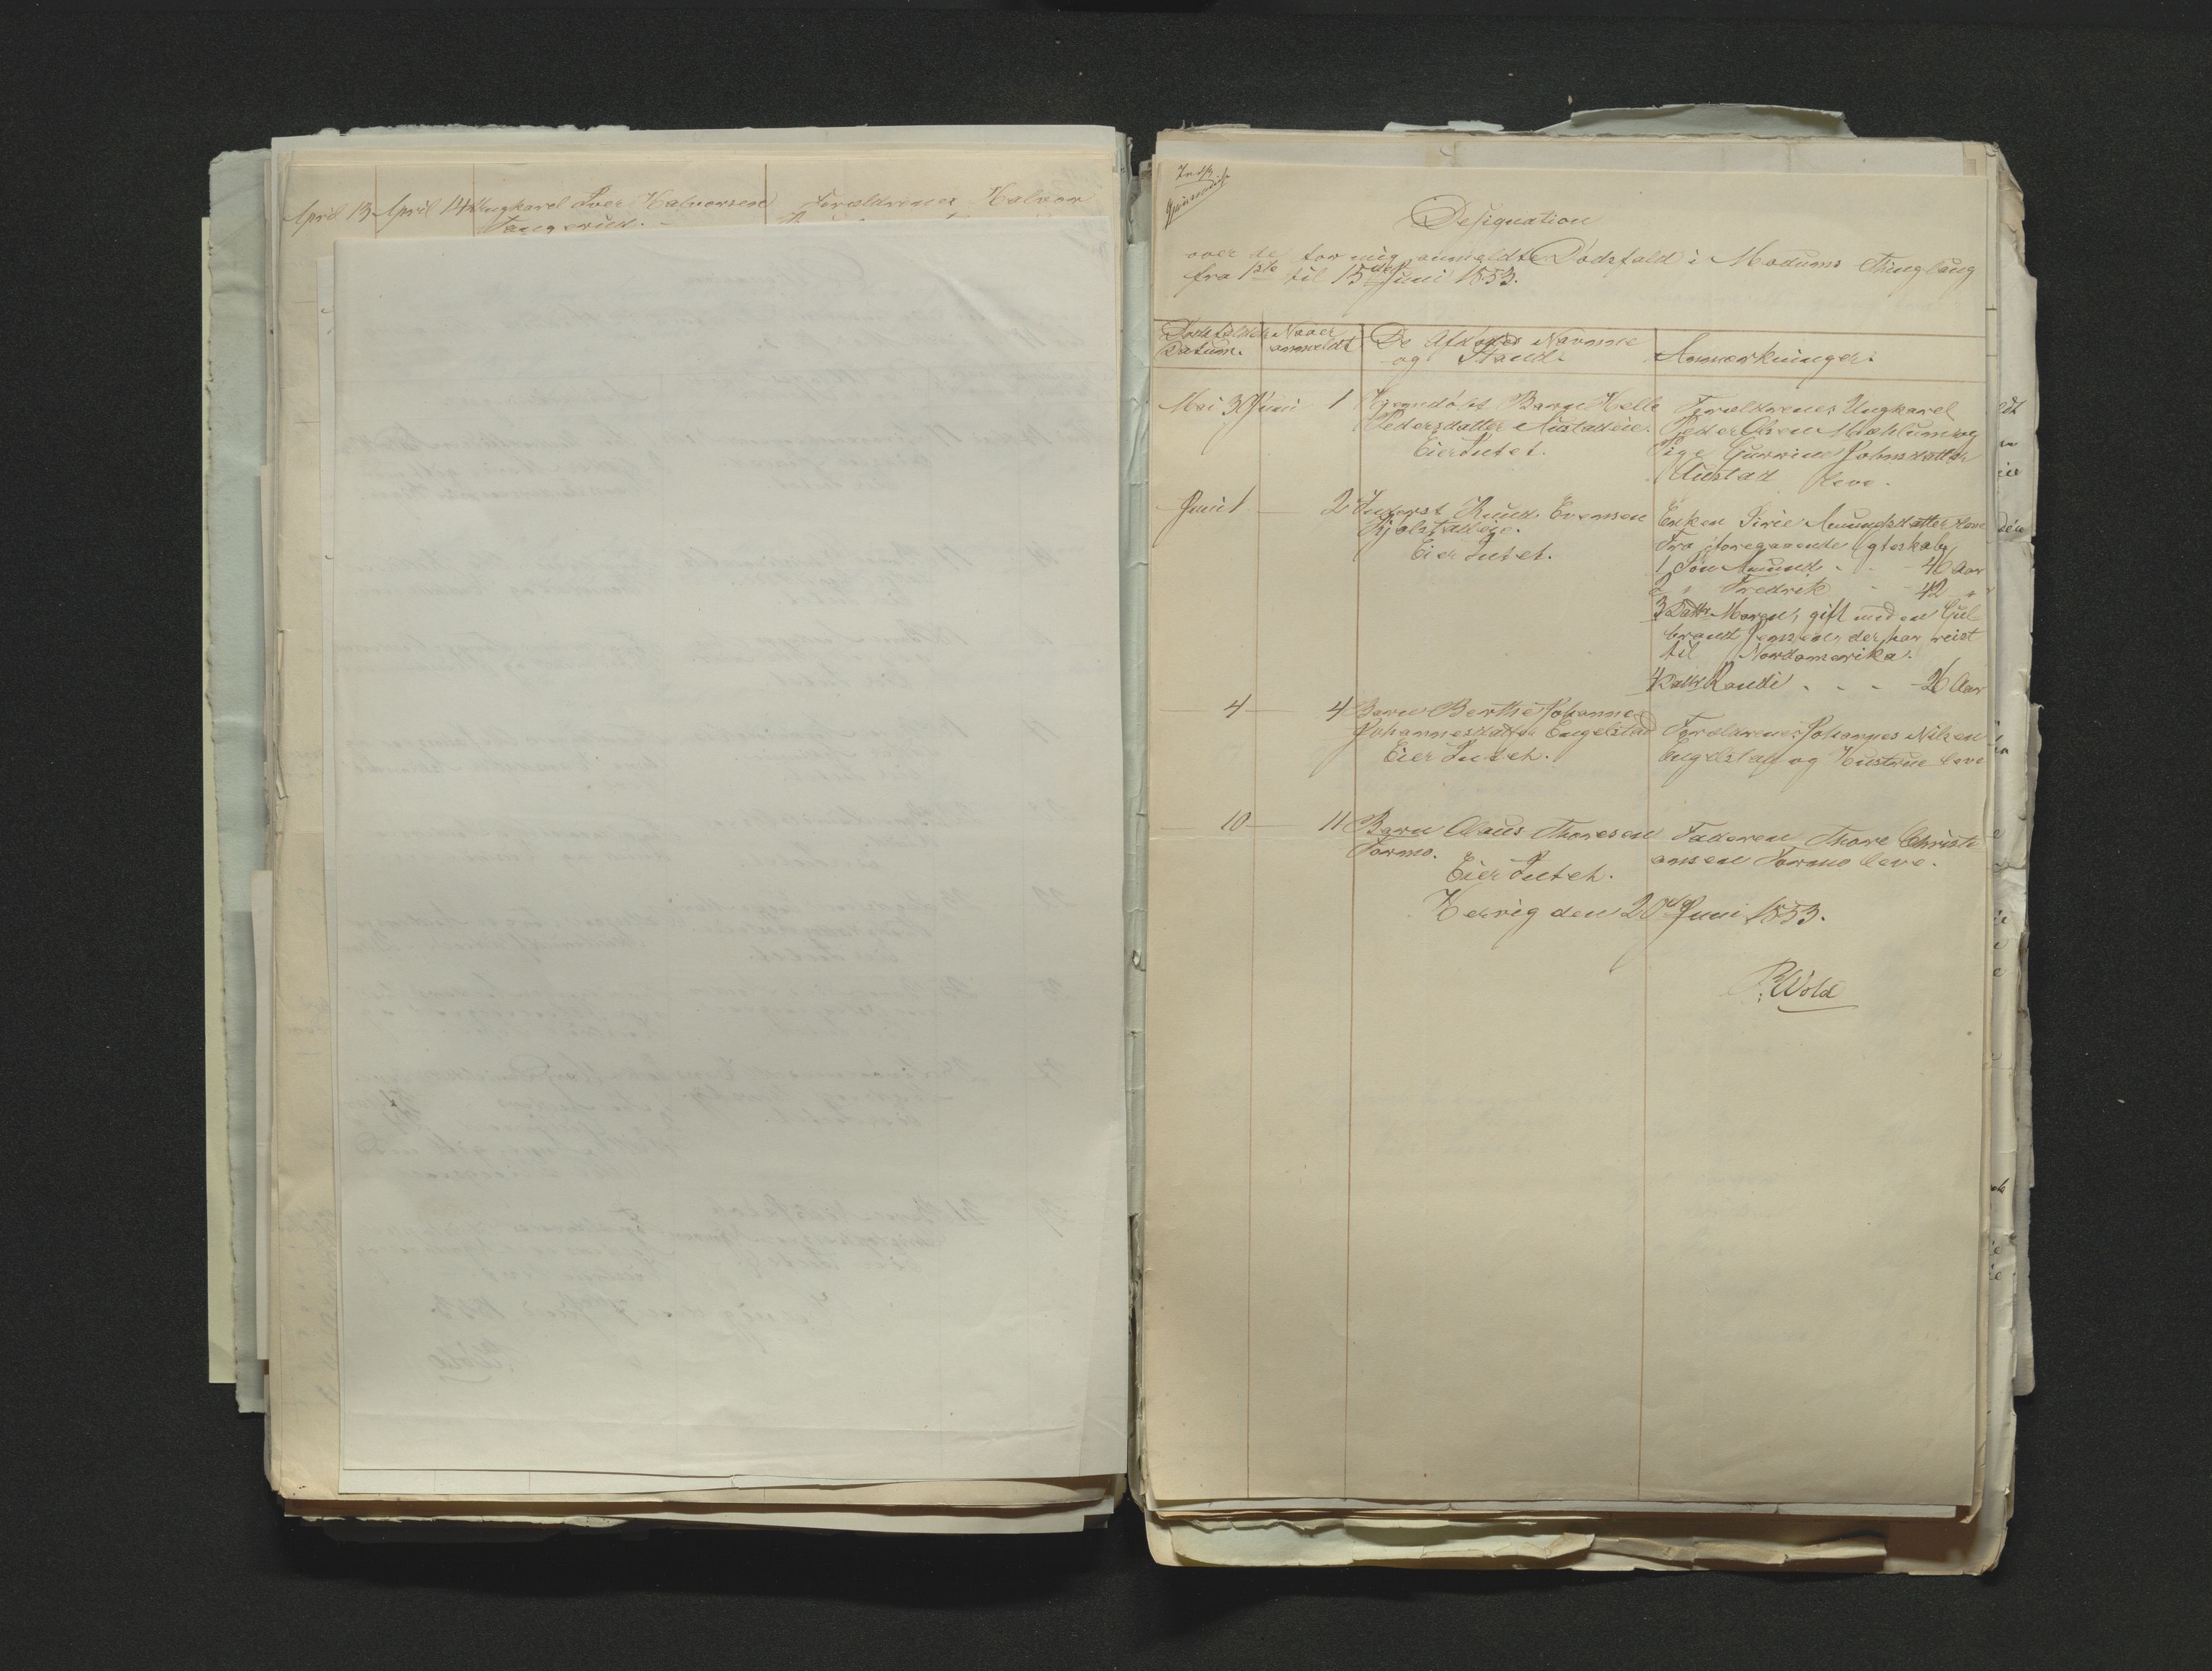 April 13 April 14 Ungkarel Iver Halvorsen Forældrenes Halvor
Tangerud.
Designation
over de for mig anmeldte Dødsfald i Modums Thinglaug
fra 1ste til 15de Juni 1853.
Dødsfaldets Datum.
Naaer anmeldt
De Afdødes Navnne og Stand.
Anmærkninger.
Mai 30 Juni 1 Hjemdøbt Barn Helle
Pedersdatter Austadeie.
Eier Intet.
Forældrenes Ungkarel
Peder Olsen Mæhlum og
Pige Gunnine Johnsdatter
Austad leve.
Juni 1 — 2 Inderst Knud Evensen
Kjølstadeie.
Eier Intet.
Enken Sirie Amundsdatter leve
Fra foregaaende Egteskab,
1 Søn Amund - - 46 Aar
2 " Fredrik - 42 "
3 Dattr Maren, gift med en Gul-
brand Jensen, der har reist
til Nordamerika.
4 Dattr Randi - - - 26 Aar
— 4 — 4 Barn Berthe Johanne
Johannesdatter Engelstad
Eier Intet.
Forældrenes Johannes Nilsen
Engelstad og Hustrue leve
— 10 — 11 Barn Olaus Thoresen
Formo.
Eier Intet.
Faderen Thore Christi-
ansen Formo leve.
Hervig den 20de Juni 1853.
P. Wold